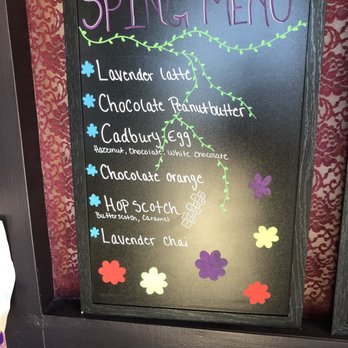 SPING MENU
Lavender latte
Chocolate Peanutbutter
Cadbury Egg
Hazelnut, Chocolate, White Chocolate
Chocolate orange
Hop Scotch
Butterscotch, Caramel
Lavender Chai